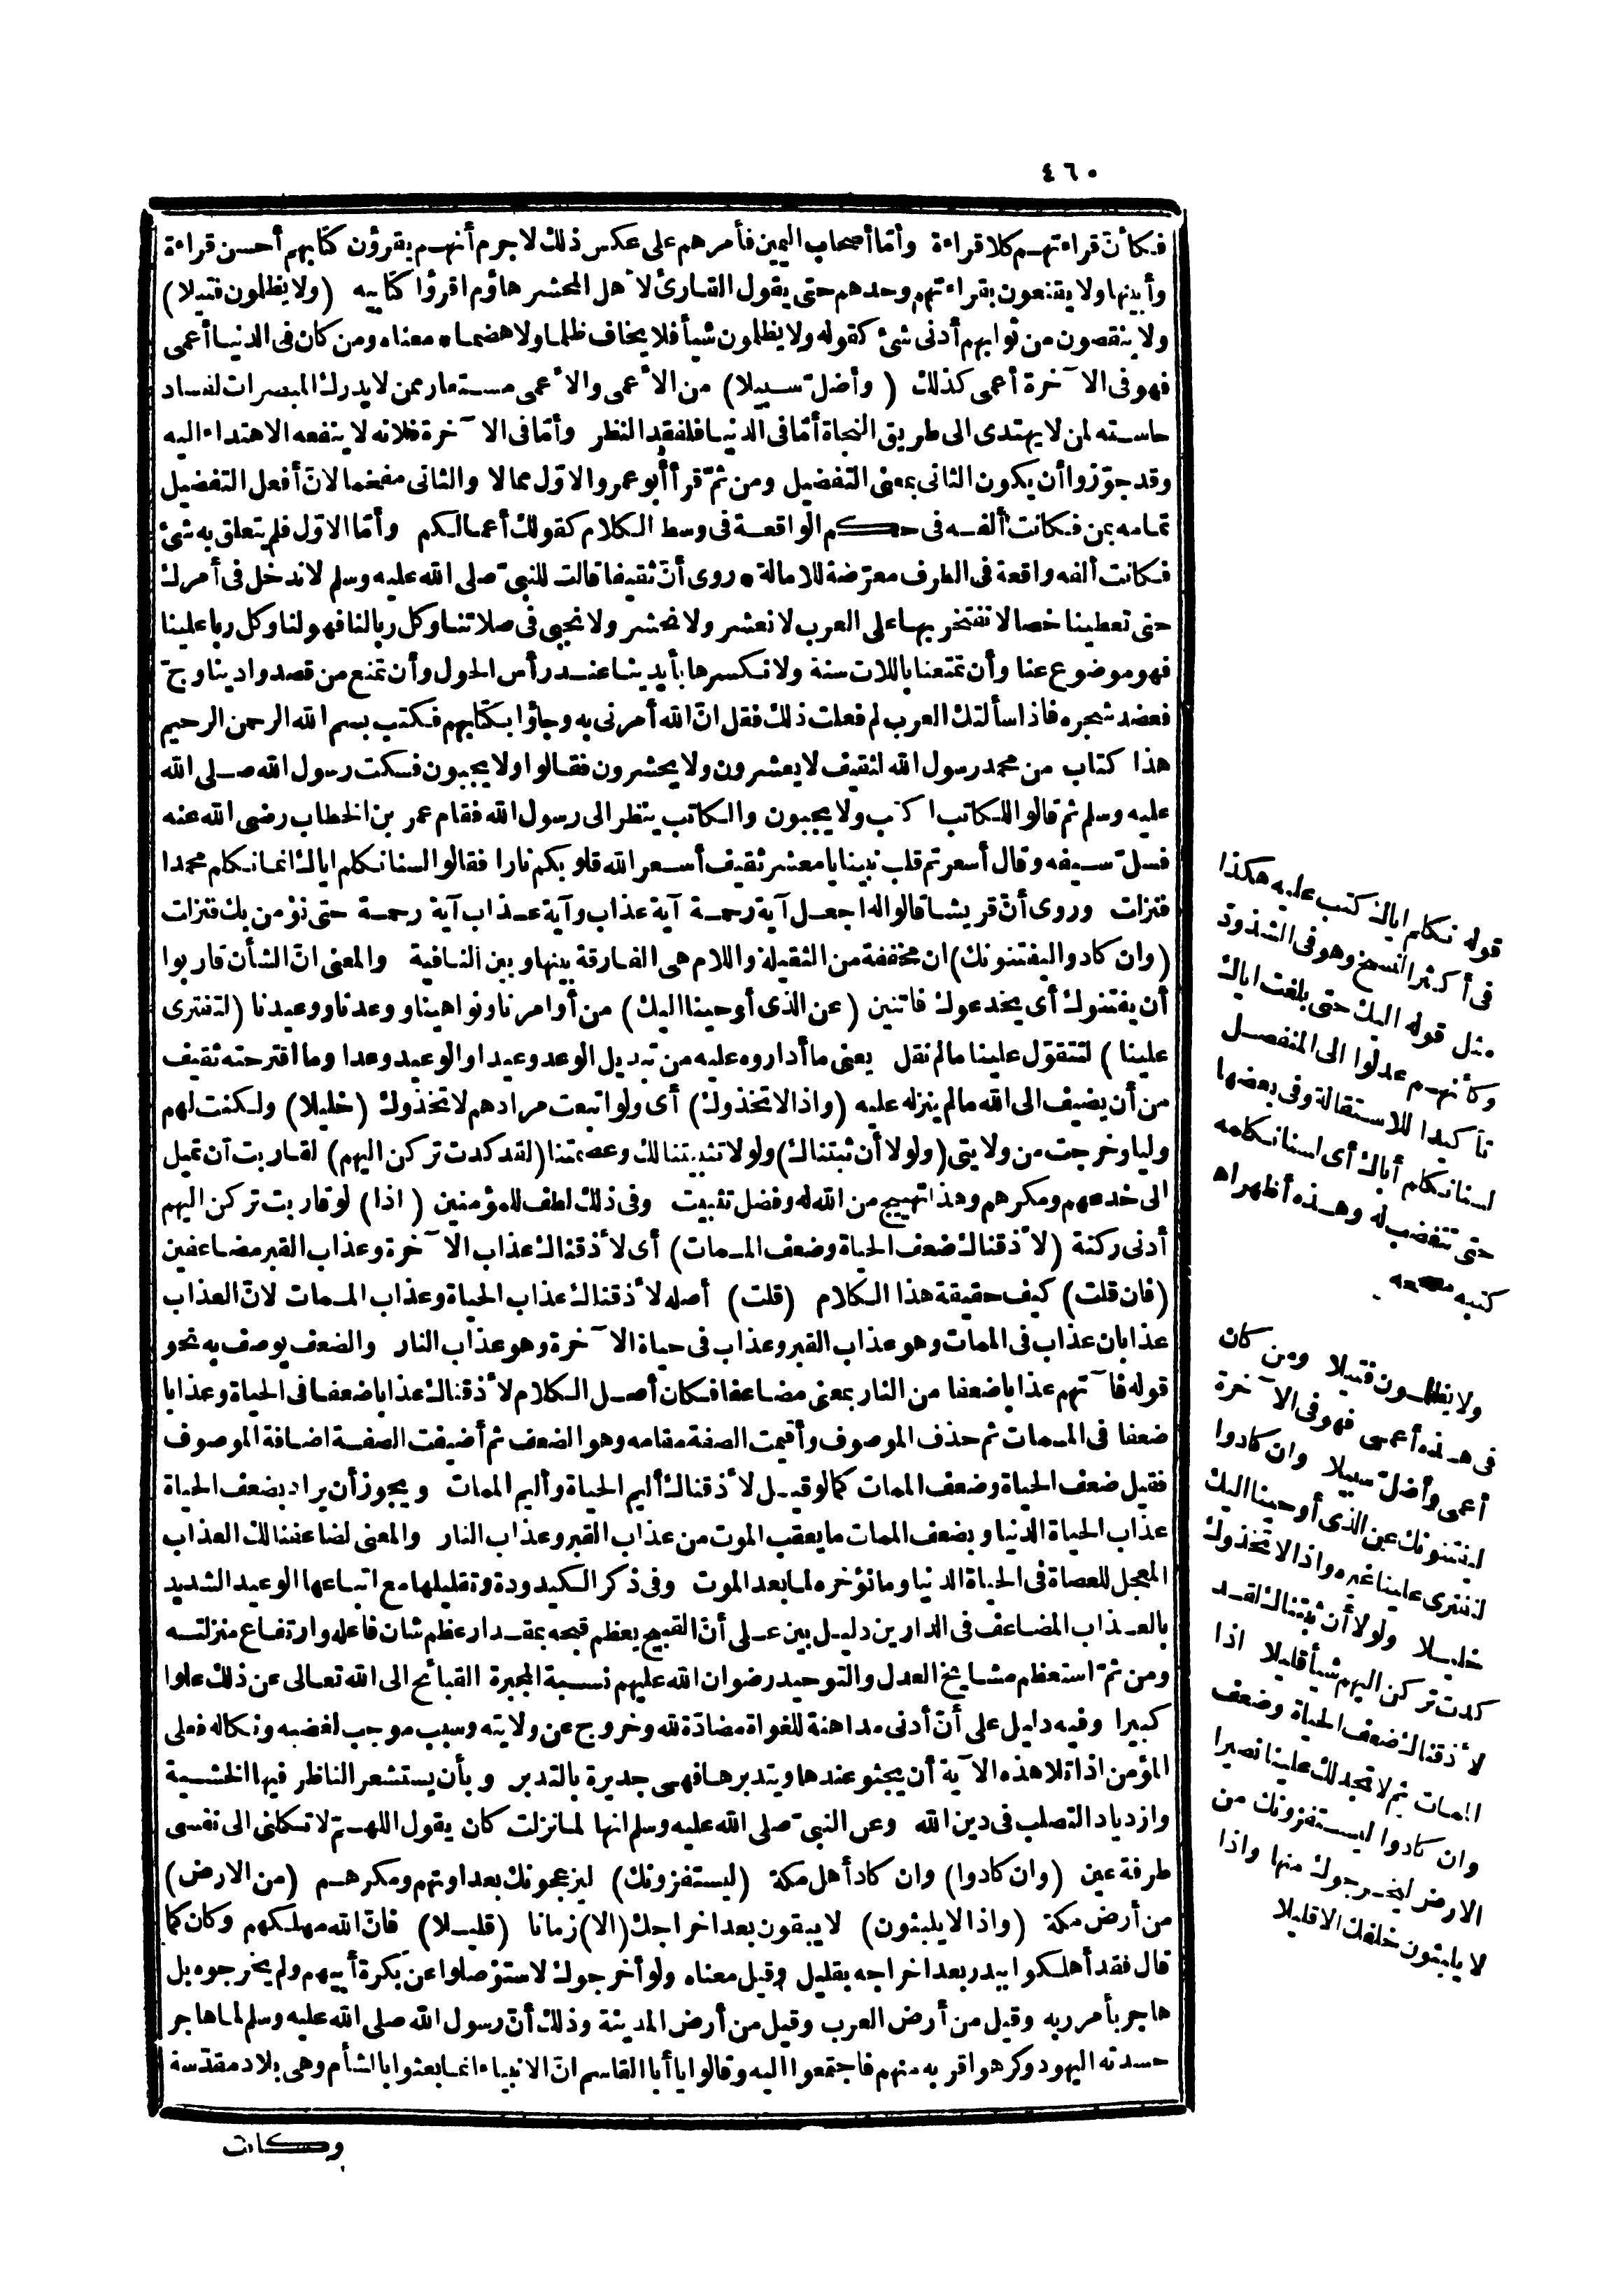 ٤٦٠
فكأنّ قراءتهم كلا قراءة وأمّا أصحاب اليمين فأمرهم على عكس ذلك لا جرم أنهم يقرؤن كتابهم أحسن قراءة
وأبينها ولا يقنعون بقراءتهم وحدهم حتى يقول القارئ لأهل المحشر هاؤم اقرؤا كتابيه (ولا يظلمون فتيلا)
ولا ينقصون من ثوابهم أدنى شئ كقوله ولا يظلمون شيأ فلا يخاف ظلما ولا هضما * معناه ومن كان فى الدنيا أعمى
فهو فى الآخرة أعمى كذلك (وأضلّ سبيلا) من الأعمى والأعمى مستعار ممن لا يدرك المبصرات لفساد
حاسته لمن لا يهتدى الى طريق النجاة أمّا فى الدنيا فلفقد النظر وأمّا فى الآخرة فلانه لا ينفعه الاهتداء اليه
وقد جوّزوا أن يكون الثانى بمعنى التفضيل ومن ثمّ قرأ أبو عمرو الاوّل ممالا والثانى مفخما لانّ أفعل التفضيل
تمامه بمن فكانت ألفه فى حكم الواقعة فى وسط الكلام كقولك أعمالكم وأمّا الاوّل فلم يتعلق به شئ
فكانت ألفه واقعة فى الطرف معرّضة للامالة * روى أنّ ثقيفا قالت للنبىّ صلى الله عليه وسلم لا ندخل فى أمرك
حتى تعطينا خصالا نفتخر بها على العرب لا نعشر ولا نحشر ولا نجبى فى صلاتنا وكل ربا لنا فهو لنا وكل ربا علينا
فهو موضوع عنا وأن تمتعنا باللات سنة ولا نكسرها بأيدينا عند رأس الحول وأن تمنع من قصد وادينا وجّ
فعضد شجره فاذا سألتك العرب لم فعلت ذلك فقل انّ الله أمرنى به وجاؤا بكتابهم فكتب بسم الله الرحمن الرحيم
هذا كتاب من محمد رسول الله لثقيف لا يعشرون ولا يحشرون فقالوا ولا يجبون فسكت رسول الله صلى الله
عليه وسلم ثم قالوا للكاتب اكتب ولا يجبون والكاتب ينظر الى رسول الله فقام عمر بن الخطاب رضى الله عنه
فسلّ سيفه وقال أسعرتم قلب نبينا يا معشر ثقيف أسعر الله قلوبكم نارا فقالوا لسنا نكلم اياك انما نكلم محمدا
فنزلت وروى أنّ قريشا قالوا له اجعل آية رحمة آية عذاب وآية عذاب آية رحمة حتى نؤمن بك فنزلت
(وان كادوا ليفتنونك) ان مخففة من الثقيلة واللام هى الفارقة بينها وبين النافية والمعنى انّ الشأن قاربوا
أن يفتنوك أى يخدعوك فاتنين (عن الذى أوحينا اليك) من أوامرنا ونواهينا ووعدنا ووعيدنا (لتفترى
علينا) لتتقوّل علينا ما لم نقل يعنى ما أداروه عليه من تبديل الوعد وعيدا والوعيد وعدا وما اقترحته ثقيف
من أن يضيف الى الله ما لم ينزله عليه (واذا لاتخذوك) أى ولو اتبعت مرادهم لاتخذوك (خليلا) ولكنت لهم
وليا وخرجت من ولايتى (ولولا أن ثبتناك) ولولا تثبيتنا لك وعصمتنا (لقد كدت تركن اليهم) لقاربت أن تميل
الى خدعهم ومكرهم وهذا تهييج من الله له وفضل تثبيت وفى ذلك لطف للمؤمنين (اذا) لو قاربت تركن اليهم
أدنى ركنة (لأذقناك ضعف الحياة وضعف الممات) أى لأذقناك عذاب الآخرة وعذاب القبر مضاعفين
(فان قلت) كيف حقيقة هذا الكلام (قلت) أصله لأذقناك عذاب الحياة وعذاب الممات لانّ العذاب
عذابان عذاب فى الممات وهو عذاب القبر وعذاب فى حياة الآخرة وهو عذاب النار والضعف يوصف به نحو
قوله فآتهم عذابا ضعفا من النار بمعنى مضاعفا فكان أصل الكلام لأذقناك عذابا ضعفا فى الحياة وعذابا
ضعفا فى الممات ثم حذف الموصوف وأقيمت الصفة مقامه وهو الضعف ثم أضيفت الصفة اضافة الموصوف
فقيل ضعف الحياة وضعف الممات كما لو قيل لأذقناك أليم الحياة وأليم الممات ويجوز أن يراد بضعف الحياة
عذاب الحياة الدنيا وبضعف الممات ما يعقب الموت من عذاب القبر وعذاب النار والمعنى لضاعفنا لك العذاب
المعجل للعصاة فى الحياة الدنيا وما نؤخره لما بعد الموت وفى ذكر الكيدودة وتقليلها مع اتباعها الوعيد الشديد
بالعذاب المضاعف فى الدارين دليل بين على أنّ القبيح يعظم قبحه بمقدار عظم شان فاعله وارتفاع منزلته
ومن ثمّ استعظم مشايخ العدل والتوحيد رضوان الله عليهم نسبة المجبرة القبائح الى الله تعالى عن ذلك علوا
كبيرا وفيه دليل على أنّ أدنى مداهنة للغواة مضادّة لله وخروج عن ولايته وسبب موجب لغضبه ونكاله فعلى
المؤمن اذا تلا هذه الآية أن يجثو عندها ويتدبرها فهى جديرة بالتدبر وبأن يستشعر الناظر فيها الخشية
وازدياد التصلب فى دين الله وعن النبىّ صلى الله عليه وسلم انها لما نزلت كان يقول اللهمّ لا تكلنى الى نفسى
طرفة عين (وان كادوا) وان كاد أهل مكة (ليستفزونك) ليزعجونك بعداوتهم ومكرهم (من الارض)
من أرض مكة (واذا لا يلبثون) لا يبقون بعد اخراجك (الا) زمانا (قليلا) فانّ الله مهلكهم وكان كما
قال فقد أهلكوا ببدر بعد اخراجه بقليل وقيل معناه ولو أخرجوك لاستؤصلوا عن بكرة أبيهم ولم يخرجوه بل
هاجر بأمر ربه وقيل من أرض العرب وقيل من أرض المدينة وذلك أنّ رسول الله صلى الله عليه وسلم لما هاجر
حسدته اليهود وكرهوا قربه منهم فاجتمعوا اليه وقالوا يا أبا القاسم انّ الانبياء انما بعثوا بالشأم وهى بلاد مقدّسة
وكانت
قوله نكلم اياك كتب عليه هكذا
فى أكثر النسخ وهو فى الشذوذ
مثل قوله اليك حتى بلغت اياك
وكأنهم عدلوا الى المنفصل
تأكيدا للاستقالة وفى بعضها
لسنا نكلم أباك أى لسنا نكلمه
حتى تتغضب له وهذه أظهر اه
كتبه مصححه
ولا يظلمون فتيلا ومن كان
فى هذه أعمى فهو فى الآخرة
أعمى وأضلّ سبيلا وان كادوا
ليفتنونك عن الذى أوحينا اليك
لتفترى علينا غيره واذا لاتخذوك
خليلا ولولا أن ثبتناك لقد
كدت تركن اليهم شيأ قليلا اذا
لأذقناك ضعف الحياة وضعف
الممات ثم لا تجد لك علينا نصيرا
وان كادوا ليستفزونك من
الارض ليخرجوك منها واذا
لا يلبثون خلفك الا قليلا